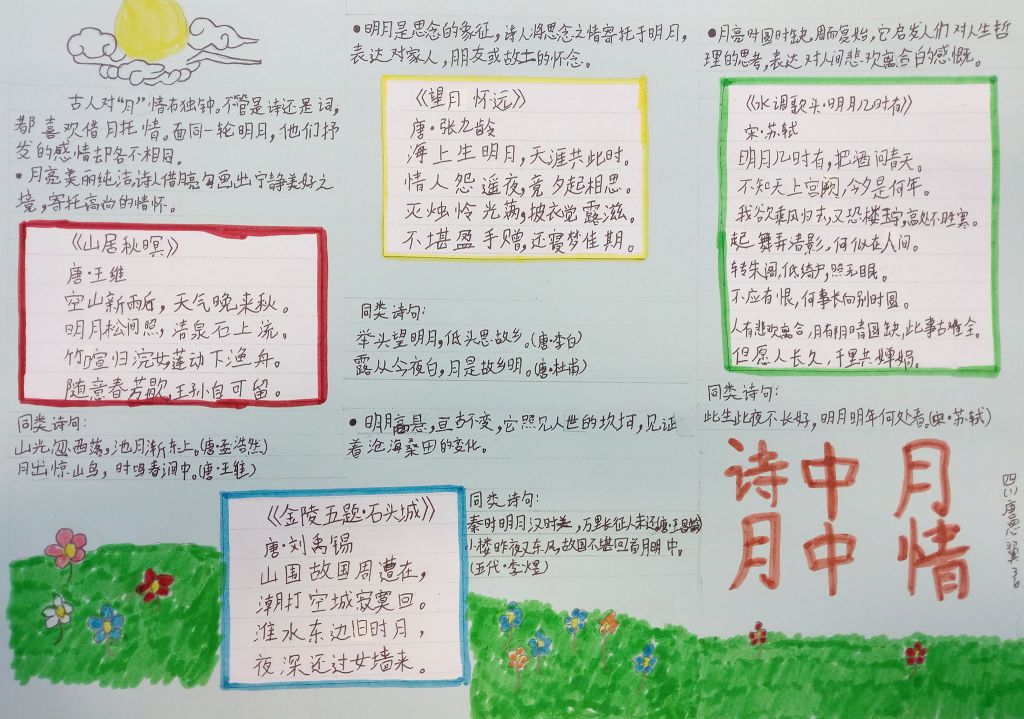 古人对“月”情有独钟。不管是诗还是词，
都喜欢借月托情。面同一轮明月，他们抒
发的感情却各不相同。
•月亮美丽纯洁，诗人借月亮勾画出宁静美好之
境，寄托高尚的情怀。
《山居秋暝》
唐·王维
空山新雨后，天气晚来秋。
明月松间照，清泉石上流。
竹喧归浣女，莲动下渔舟。
随意春芳歇，王孙自可留。
同类诗句：
山光忽西落，池月渐东上。(唐·孟浩然)
月出惊山鸟，时鸣春涧中。(唐·王维)
•明月是思念的象征，诗人将思念之情寄托于明月，
表达对家人，朋友或故土的怀念。
《望月怀远》
唐·张九龄
海上生明月，天涯共此时。
情人怨遥夜，竟夕起相思。
灭烛怜光满，披衣觉露滋。
不堪盈手赠，还寝梦佳期。
同类诗句：
举头望明月，低头思故乡。(唐·李白)
露从今夜白，月是故乡明。(唐·杜甫)
•明月高悬，亘古不变，它照见人世的坎坷，见证
着沧海桑田的变化。
《金陵五题·石头城》
唐·刘禹锡
山围故国周遭在，
潮打空城寂寞回。
淮水东边旧时月，
夜深还过女墙来。
同类诗句：
秦时明月汉时关，万里长征人未还(唐·王昌龄)
小楼昨夜又东风，故国不堪回首月明中。
(五代·李煜)
•月亮时圆时缺，周而复始，它启发人们对人生哲
理的思考，表达对人间悲欢离合的感慨。
《水调歌头·明月几时有》
宋·苏轼
明月几时有，把酒问青天。
不知天上宫阙，今夕是何年。
我欲乘风归去，又恐楼宇，高处不胜寒。
起舞弄清影，何似在人间。
转朱阁，低绮户，照无眠。
不应有恨，何事长向别时圆。
人有悲欢离合，月有阴晴圆缺，此事古难全。
但愿人长久，千里共婵娟。
同类诗句：
此生此夜不长好，明月明年何处看。(宋·苏轼)
诗中月
月中情
四川唐思翼